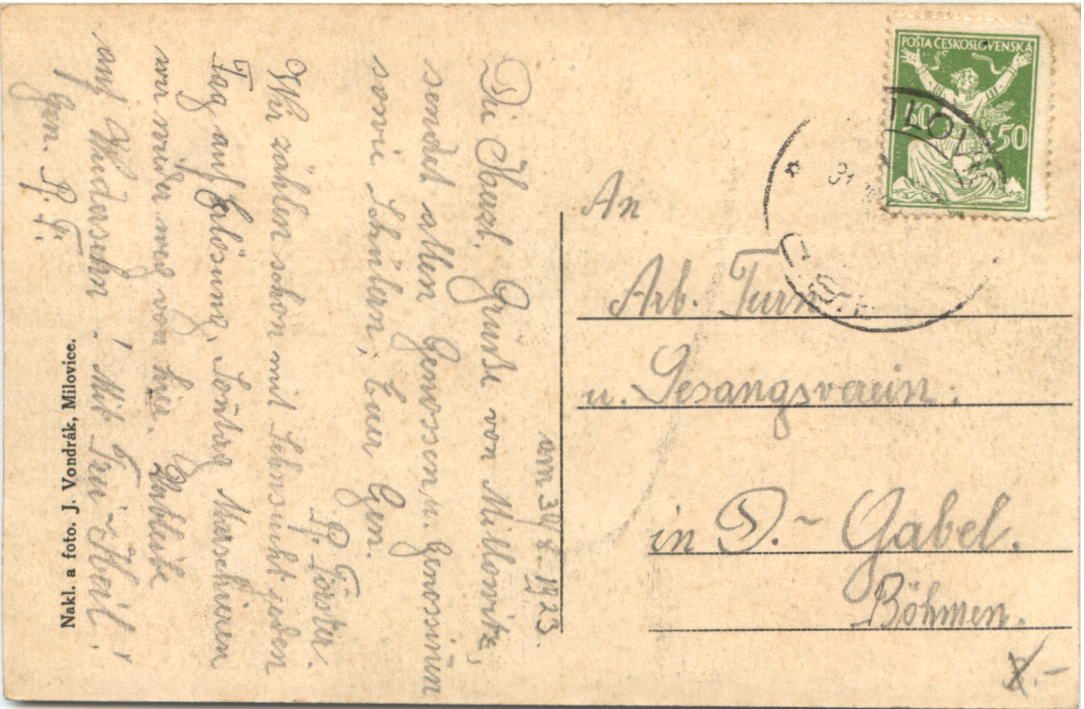 POŠTA ČESKOSLOVENSKÁ
50 50
An
Arb. Turn
u. Gesangsverein.
in D.- Gabel.
Böhmen.
am 31/8 - 1923.
Grüße von Millowitz,
sendet allen Genossen u. Genossinen
sowie Schülern, Euer Gen.
Wir zählen schon mit Sehnsucht jeden
Tag auf Erlösung, Sontag Maschieren
wir wider weg von hir. Verbleibe
auf Widersehn! Mit Frei-Heil!
Gen.
Nakl. a foto. J. Vondrák, Milovice.